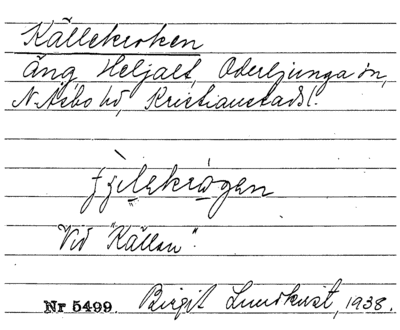 Källekroken
Äng Heljalt, Oderljunga sn,
N. Åsbo hd, Kristianstads l.
Vid "Källan".
Nr 5499. Birgit Lundkvist, 1938.